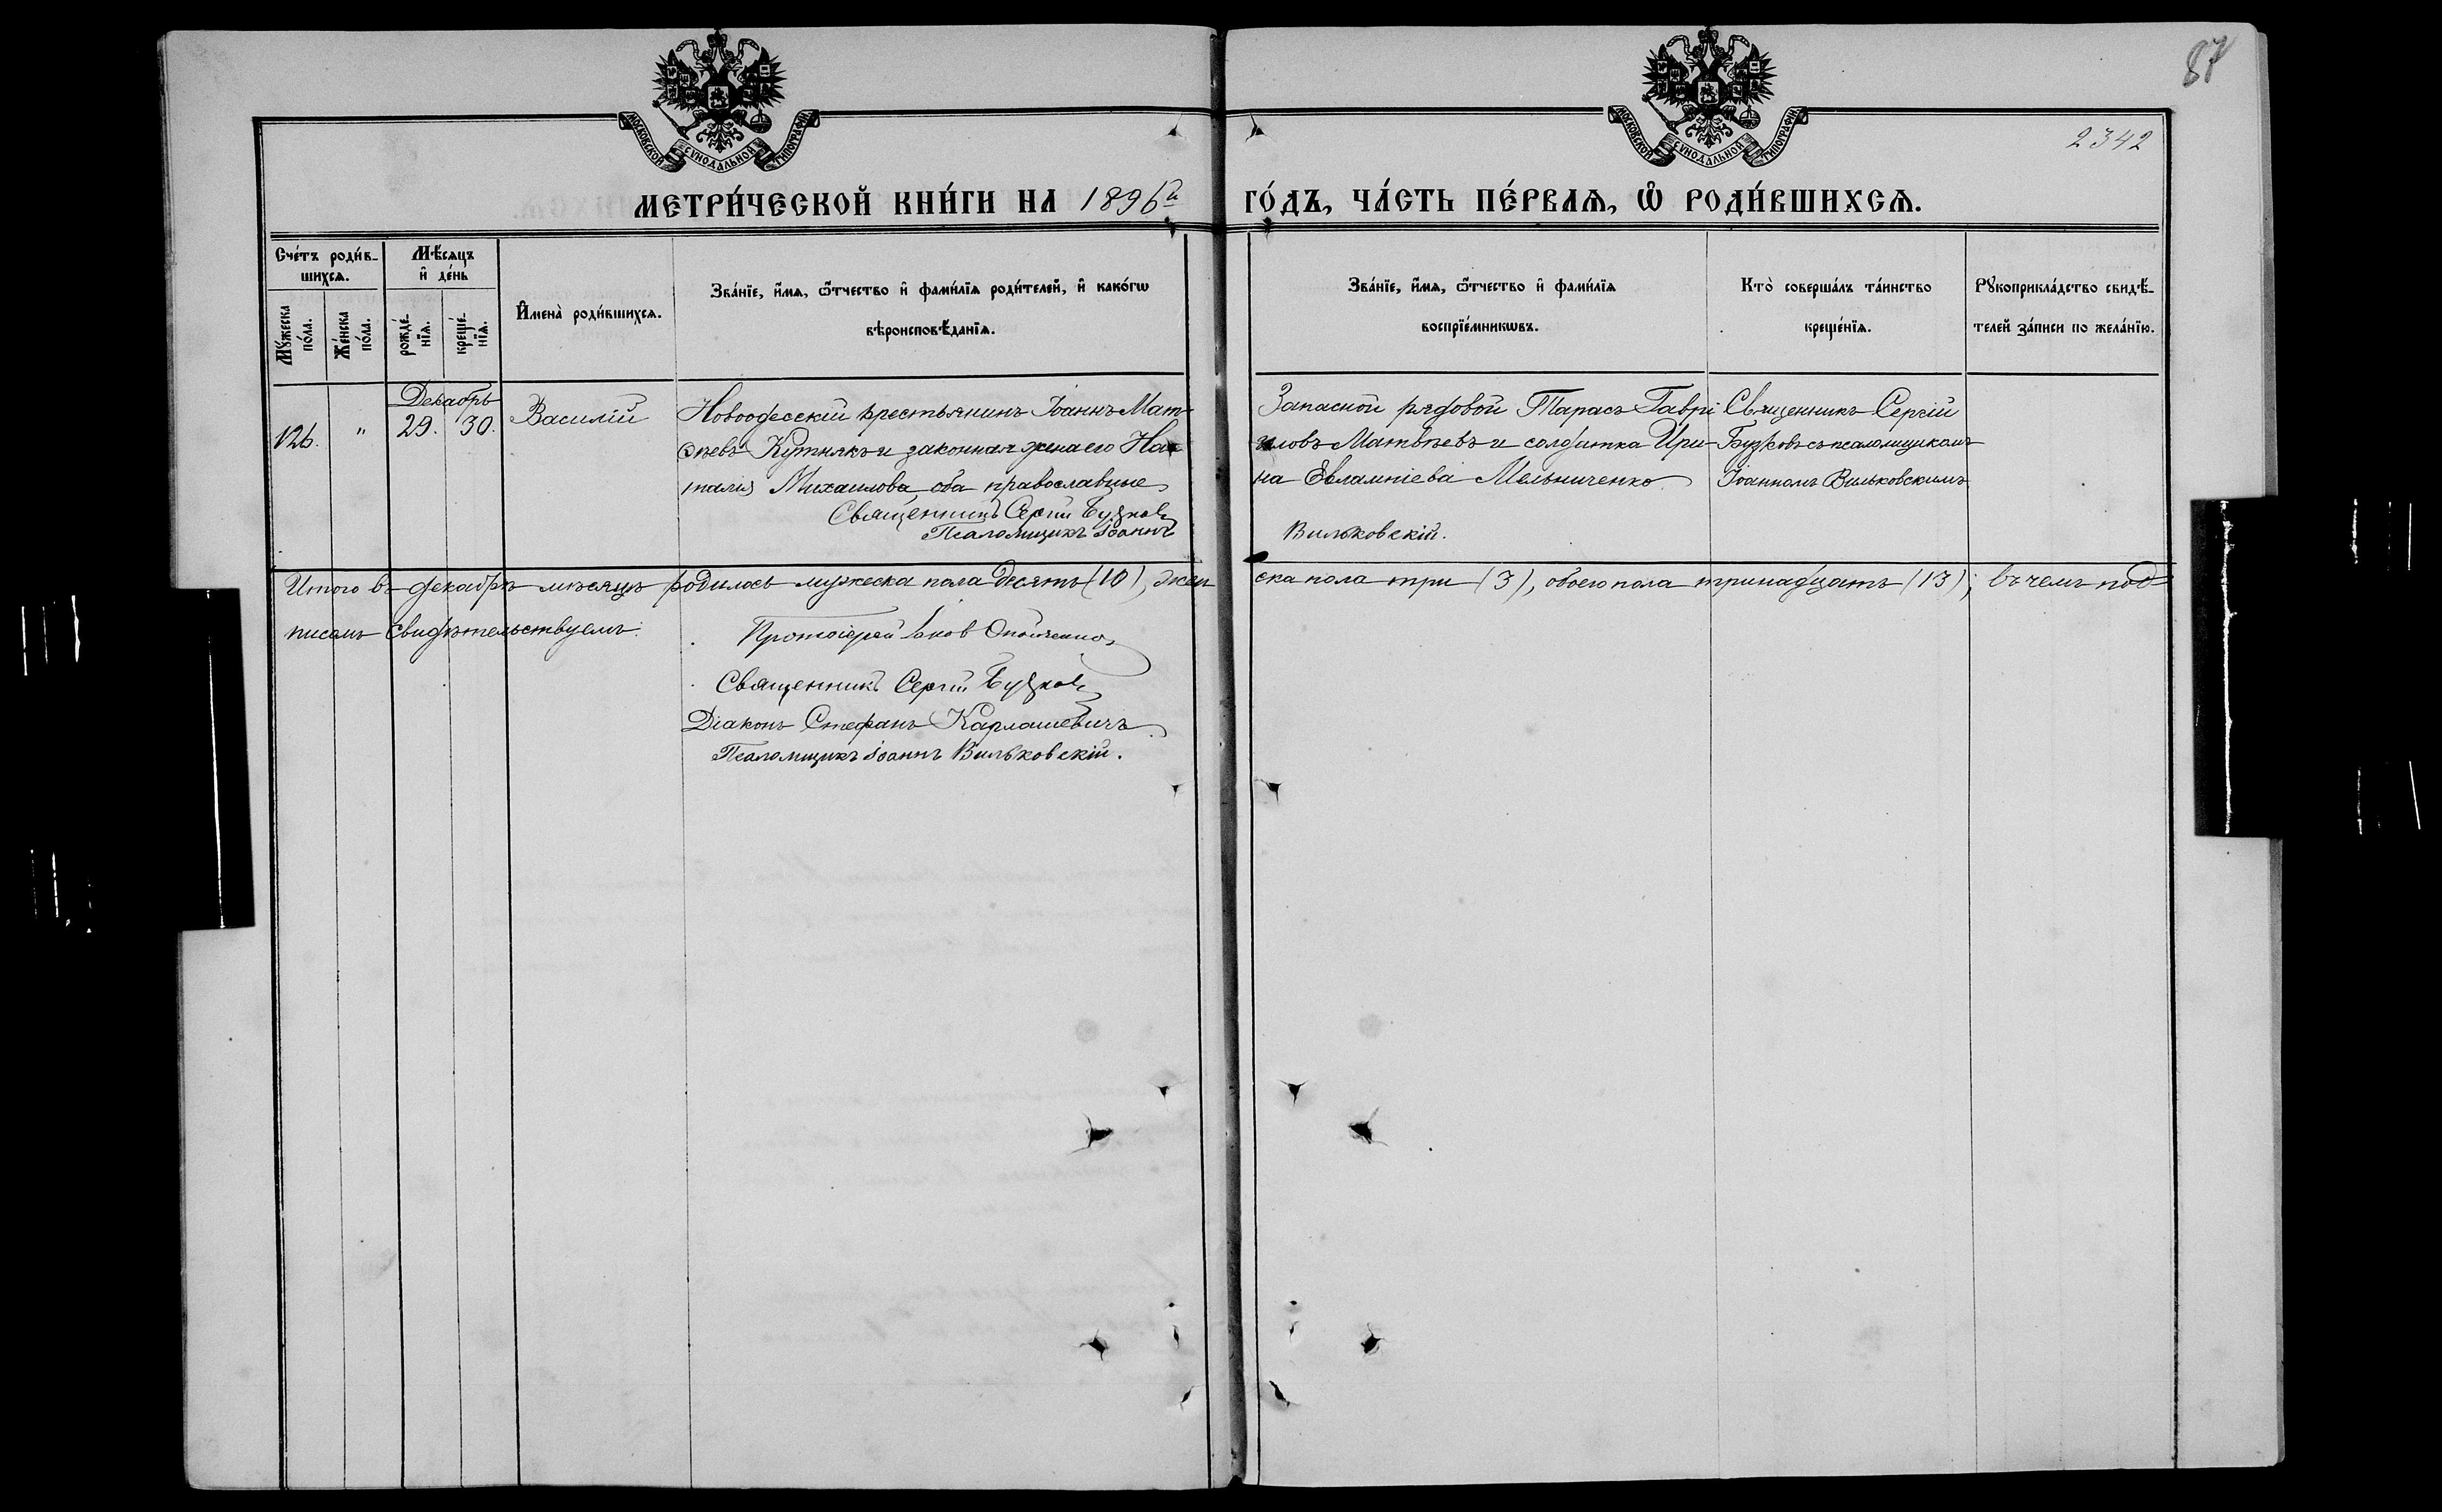 87
2342
МОСКОВСКОЙ СѴНОДАЛЬНОЙ ТИПОГРАФІИ
МОСКОВСКОЙ СѴНОДАЛЬНОЙ ТИПОГРАФІИ
МЕТРИ́ЧЕСКОЙ КНИ́ГИ НА 1896й ГО́ДЪ, ЧА́СТЬ ПЕ́РВАѦ, Ѡ҆ РОДИ́ВШИХСѦ.
Сче́тъ роди́в-
шихсѧ.
Мꙋ́жеска по́ла.
Же́нска по́ла.
Мѣ́сѧцъ
и҆ де́нь
рожде́-нїѧ.
креще́-нїѧ.
И҆мена̀ роди́вшихсѧ.
Зва́нїе, и҆́мѧ, ѻ҆́тчество и҆ фами́лїѧ роди́телей, и҆ како́гѡ
вѣроисповѣ́данїѧ.
Зва́нїе, и҆́мѧ, ѻ҆́тчество и҆ фами́лїѧ
воспрїе́мникѡвъ.
Кто̀ соверша́лъ та́инство
креще́нїѧ.
Рꙋкоприкла́дство свидѣ́-
телей за́писи по жела́нїю.
Декабрь
126. " 29. 30. Василій
Новоодесскій крестьянинъ Іоаннъ Мат-
ѳеевъ Кутнякъ и законная жена его На-
талія Михаилова, оба православные
Священникъ Сергій Бузков
Псаломщикъ Іоаннъ Вильковскій.
Запасной рядовой Тарасъ Гаврі-
иловъ Матвѣевъ и солдатка Ири-
на Евлампіева Мельниченко
Священникъ Сергій
Бузковъ съ псаломщикомъ
Іоанномъ Вильковскимъ
Итого въ декабрѣ мѣсяцѣ родилось мужеска пола десять (10), жен-
ска пола три (3), обоего пола тринадцать (13); въ чемъ под-
писомъ свидѣтельствуемъ:
Протоіерей Іаков
Священникъ Сергій Бузков
Діаконъ Стефанъ Карлашевичъ
Псаломщикъ Іоаннъ Вильковскій.